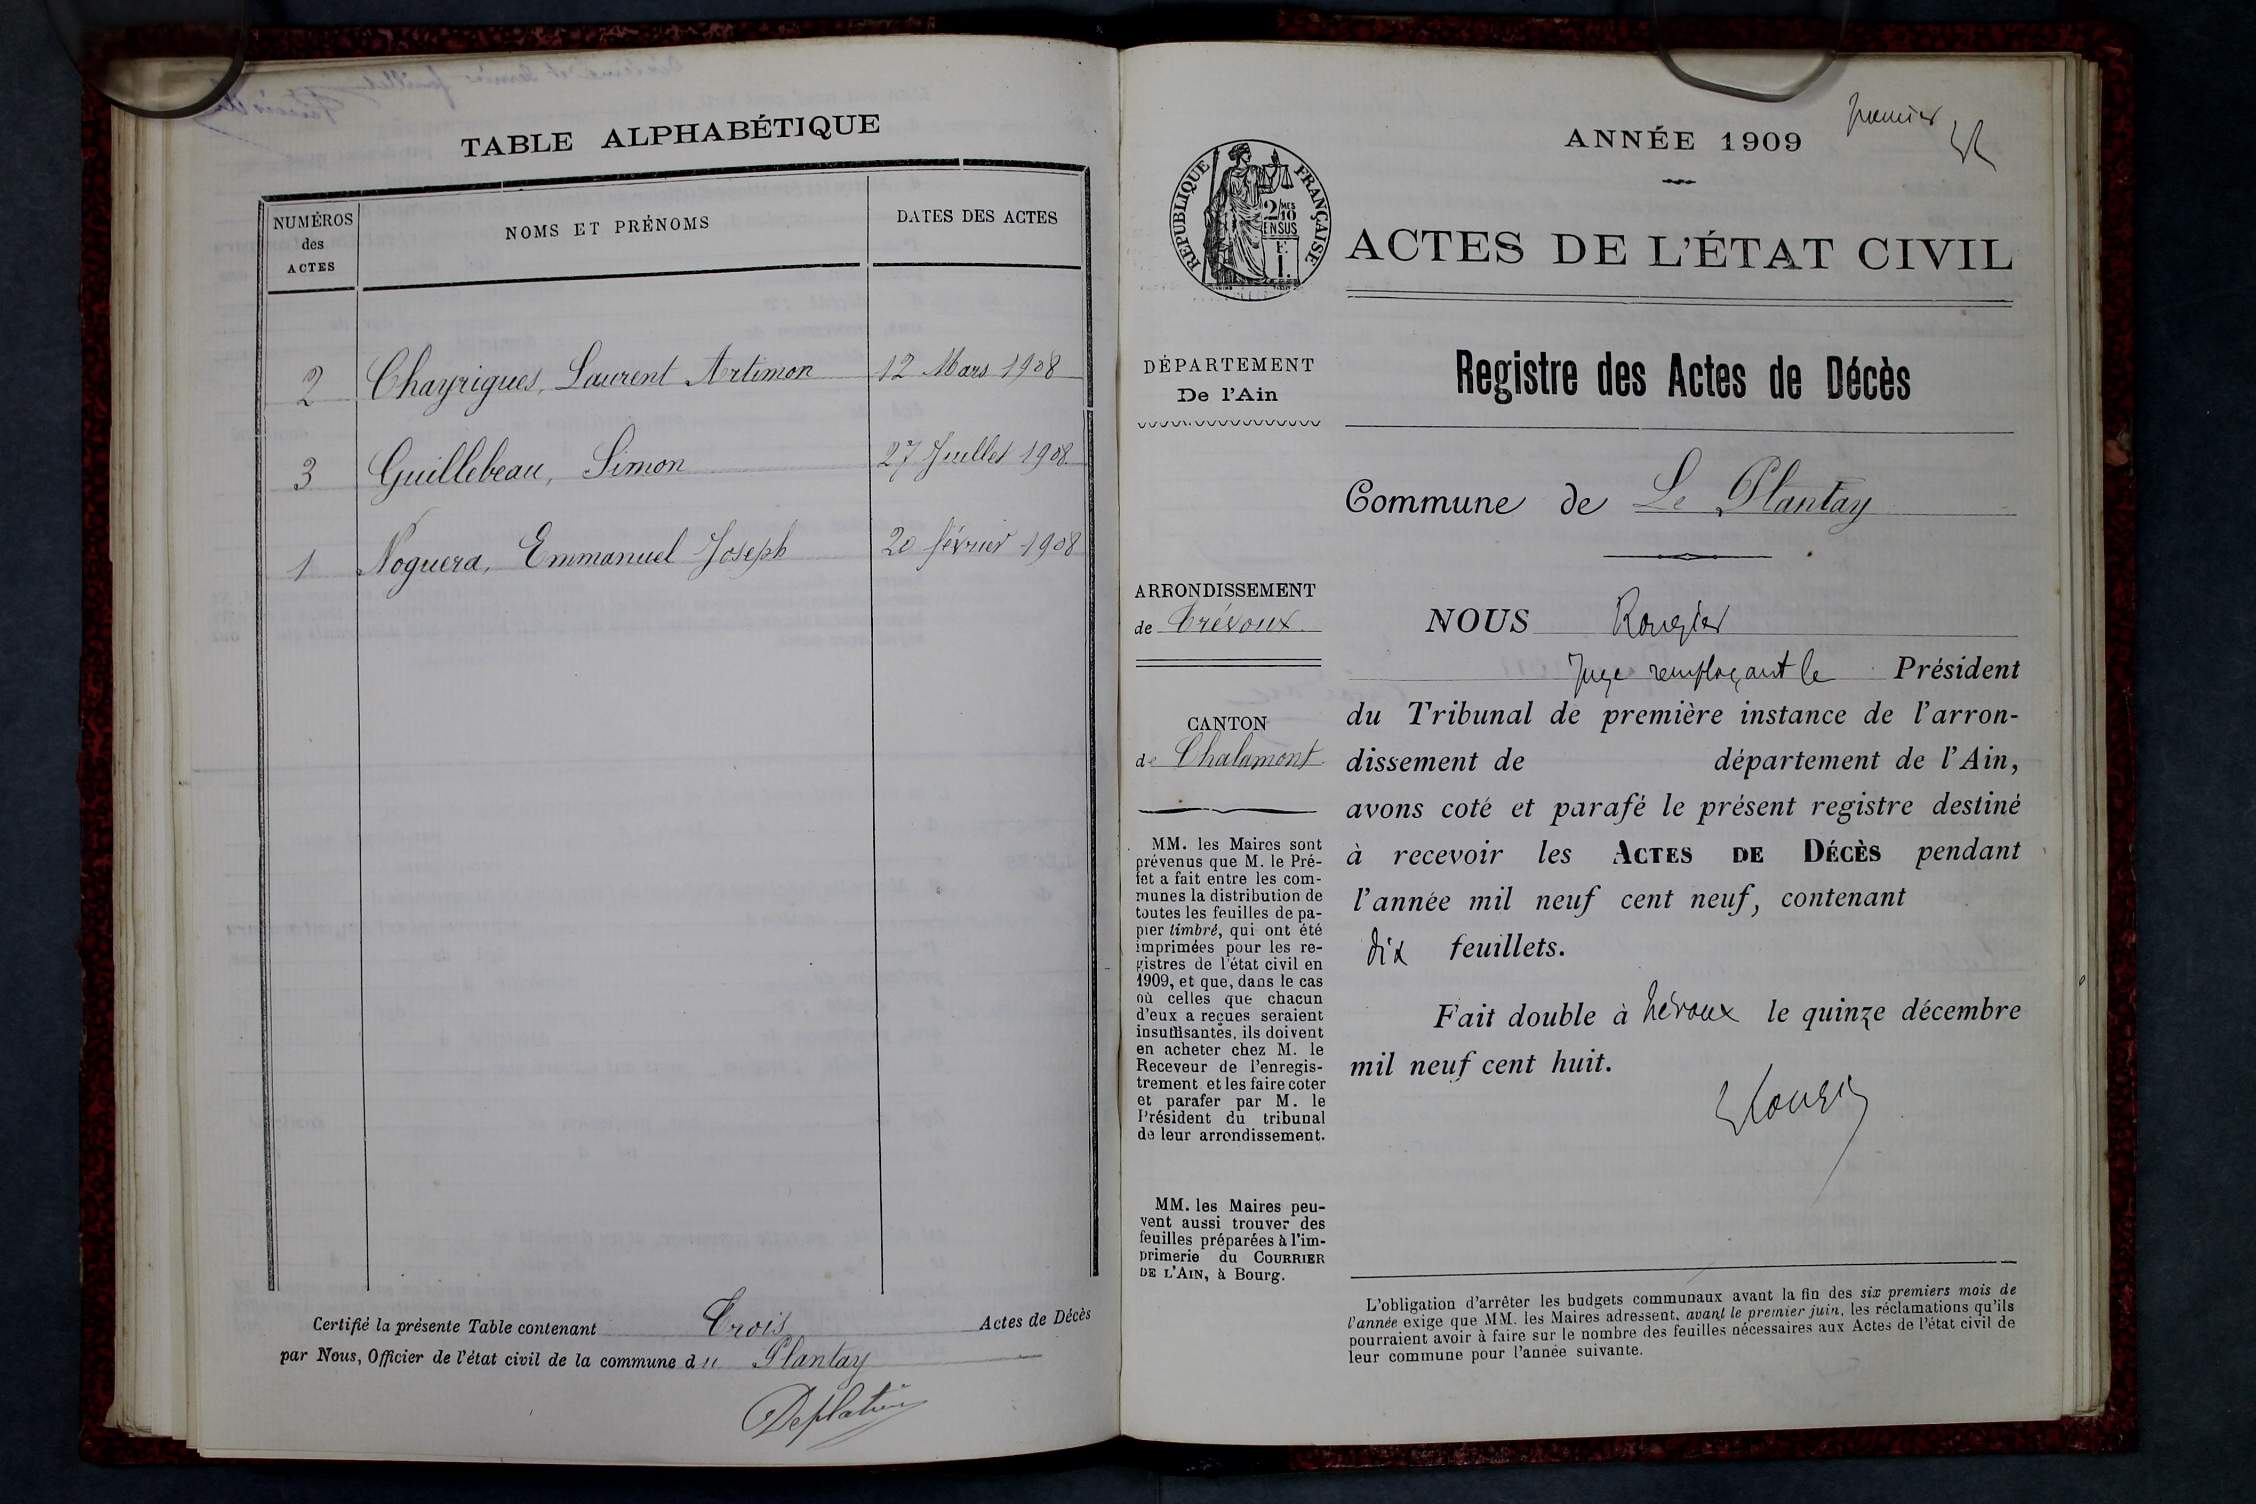 TABLE ALPHABÉTIQUE
NUMÉROS
des
ACTES
NOMS ET PRÉNOMS
DATES DES ACTES
2 Chayrigues, Laurent Artimon 12 Mars 1908
3 Guillebeau, Simon 27 Juillet 1908
1 Noguera, Emmanuel Joseph 20 février 1908
Certifié la présente Table contenant Trois Actes de Décès
par Nous, Officier de l'état civil de la commune du Plantay
premier
ANNÉE 1909
RÉPUBLIQUE FRANÇAISE
2/10
MES
EN SUS
E.
I.
ACTES DE L'ÉTAT CIVIL
DÉPARTEMENT
De l'Ain
ARRONDISSEMENT
de Trévoux
CANTON
de Chalamont
MM. les Maires sont
prévenus que M. le Pré-
fet a fait entre les com-
munes la distribution de
toutes les feuilles de pa-
pier timbré, qui ont été
imprimées pour les re-
gistres de l'état civil en
1909, et que, dans le cas
où celles que chacun
d'eux a reçues seraient
insuffisantes, ils doivent
en acheter chez M. le
Receveur de l'enregis-
trement et les faire coter
et parafer par M. le
Président du tribunal
de leur arrondissement.
MM. les Maires peu-
vent aussi trouver des
feuilles préparées à l'im-
primerie du COURRIER
DE L'AIN, à Bourg.
Registre des Actes de Décès
Commune de Le Plantay
NOUS Rougier
Juge remplaçant le Président
du Tribunal de première instance de l'arron-
dissement de département de l'Ain,
avons coté et parafé le présent registre destiné
à recevoir les ACTES DE DÉCÈS pendant
l'année mil neuf cent neuf, contenant
dix feuillets.
Fait double à Trévoux le quinze décembre
mil neuf cent huit.
Rougier
L'obligation d'arrêter les budgets communaux avant la fin des six premiers mois de
l'année exige que MM. les Maires adressent, avant le premier juin, les réclamations qu'ils
pourraient avoir à faire sur le nombre des feuilles nécessaires aux Actes de l'état civil de
leur commune pour l'année suivante.